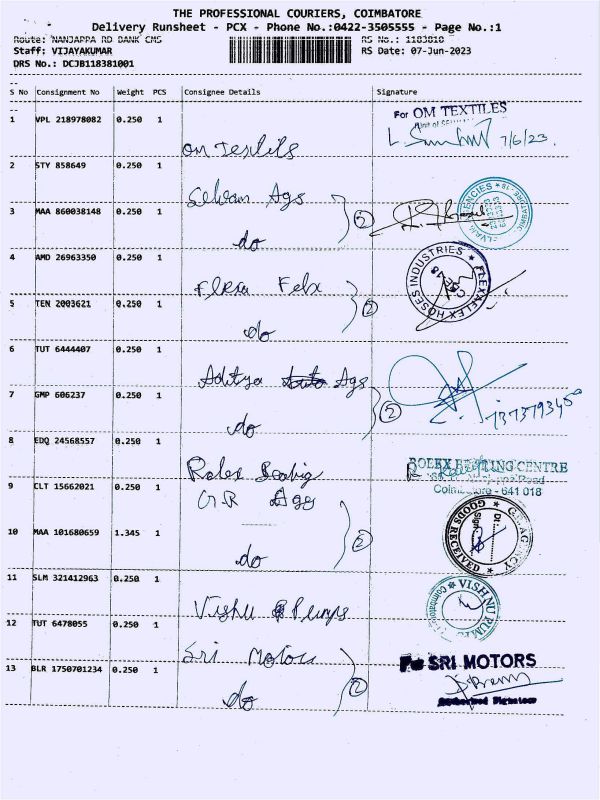 THE PROFESSIONAL COURIERS, COIMBATORE
Delivery Runsheet - PCX - Phone No.:0422-3505555 - Page No.:1
Route: NANJAPPA RD BANK CMS RS No.: 1183810
Staff: VIJAYAKUMAR RS Date: 07-Jun-2023
DRS No.: DCJB118381001
S No Consignment No Weight PCS Consignee Details Signature
1 VPL 218978082 0.250 1 om Textils For OM TEXTILES
7/6/23.
2 STY 858649 0.250 1 Selvam Ags
3 MAA 860038148 0.250 1 do 2
4 AMD 26963350 0.250 1 Flexa Felx FLEXAFLEX HOSES INDUSTRIES
5 TEN 2003621 0.250 1 do 2
6 TUT 6444407 0.250 1 Aditya Ags
7 GMP 606237 0.250 1 do 2
8 EDQ 24568557 0.250 1 Rolex ROLEX CENTRE
Coimbatore - 641 018
9 CLT 15662021 0.250 1 G.R Ags G.R. AGENCY
GOODS RECEIVED
Dt.
Sign.
10 MAA 101680659 1.345 1 do 2
11 SLM 321412963 0.250 1 Vishu Pumps VISHNU PUM
12 TUT 6478055 0.250 1 Sri Motors For SRI MOTORS
13 BLR 1750701234 0.250 1 do 2
Authorised Signature